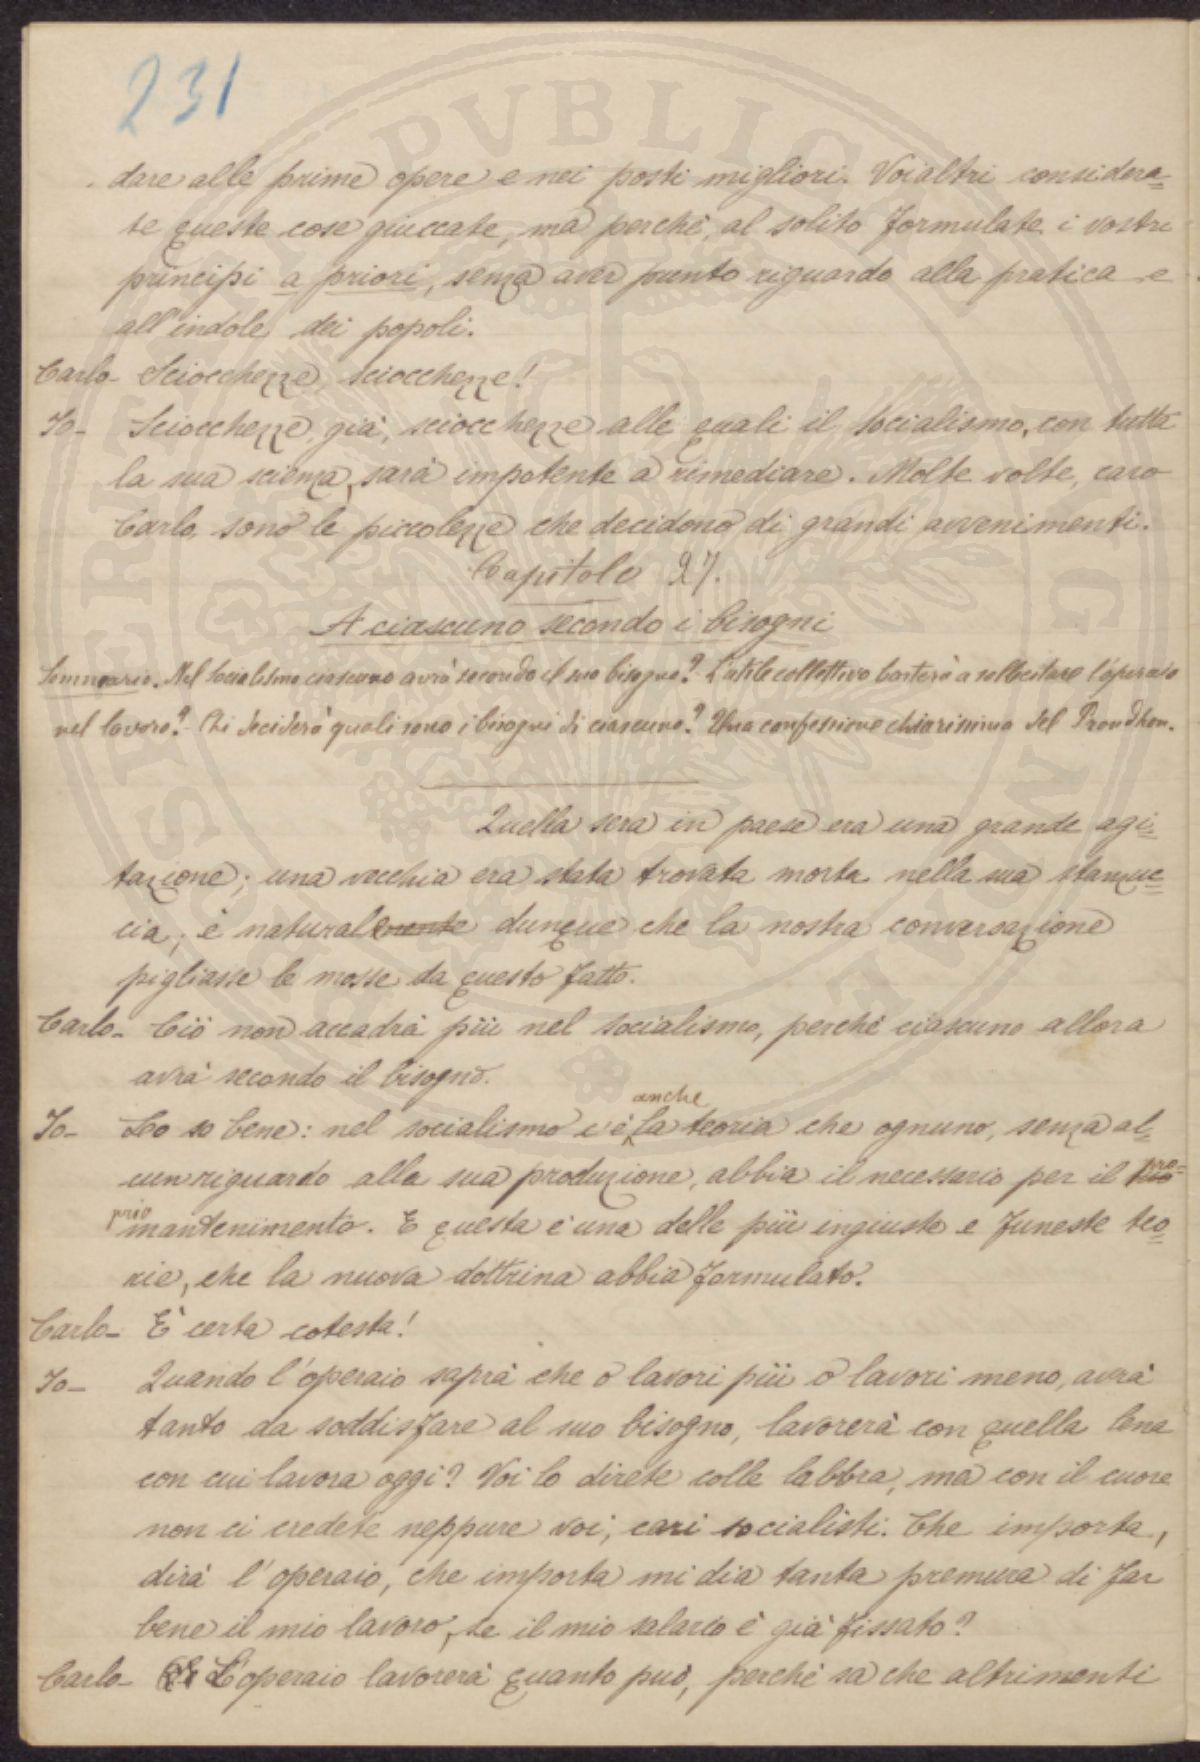 231
dare alle prime opere e nei posti migliori. Voialtri considera=
te queste cose giuccate, ma perchè, al solito formulate i vostri
principi a priori, senza aver punto riguardo alla pratica e
all'indole dei popoli.
Carlo- Sciocchezze, sciocchezze!
Io- Sciocchezze, già, sciocchezze alle quali il socialismo, con tutta
la sua scienza, sarà impotente a rimediare. Molte volte, caro
Carlo, sono le piccolezze che decidono di grandi avvenimenti.
Capitolo 27.
A ciascuno secondo i bisogni
Sommario. Nel Socialismo ciascuno avrà secondo il suo bisogno? L'utile collettivo basterà a sollecitare l'operaio
nel lavoro? Chi deciderà quali sono i bisogni di ciascuno? Una confessione chiarissima del Proudhon.
Quella sera in paese era una grande agi=
tazione; una vecchia era stata trovata morta nella sua stanzuc=
cia; è naturalmente dunque che la nostra conversazione
pigliasse le mosse da questo fatto.
Carlo- Ciò non accadrà più nel socialismo, perchè ciascuno allora
avrà secondo il bisogno.
Io- Lo so bene: nel socialismo c'è anche la teoria che ognuno, senza al=
cun riguardo alla sua produzione, abbia il necessario per il pro=
prio mantenimento. E questa è una delle più ingiuste e funeste teo=
rie, che la nuova dottrina abbia formulato.
Carlo- È certa cotesta!
Io- Quando l'operaio saprà che o lavori più o lavori meno, avrà
tanto da soddisfare al suo bisogno, lavorerà con quella lena
con cui lavora oggi? Voi lo direte colle labbra, ma con il cuore
non ci credete neppure voi, cari socialisti. Che importa,
dirà l'operaio, che importa mi dia tanta premura di far
bene il mio lavoro, se il mio salario è già fissato?
Carlo- L'operaio lavorerà quanto può, perchè sa che altrimenti